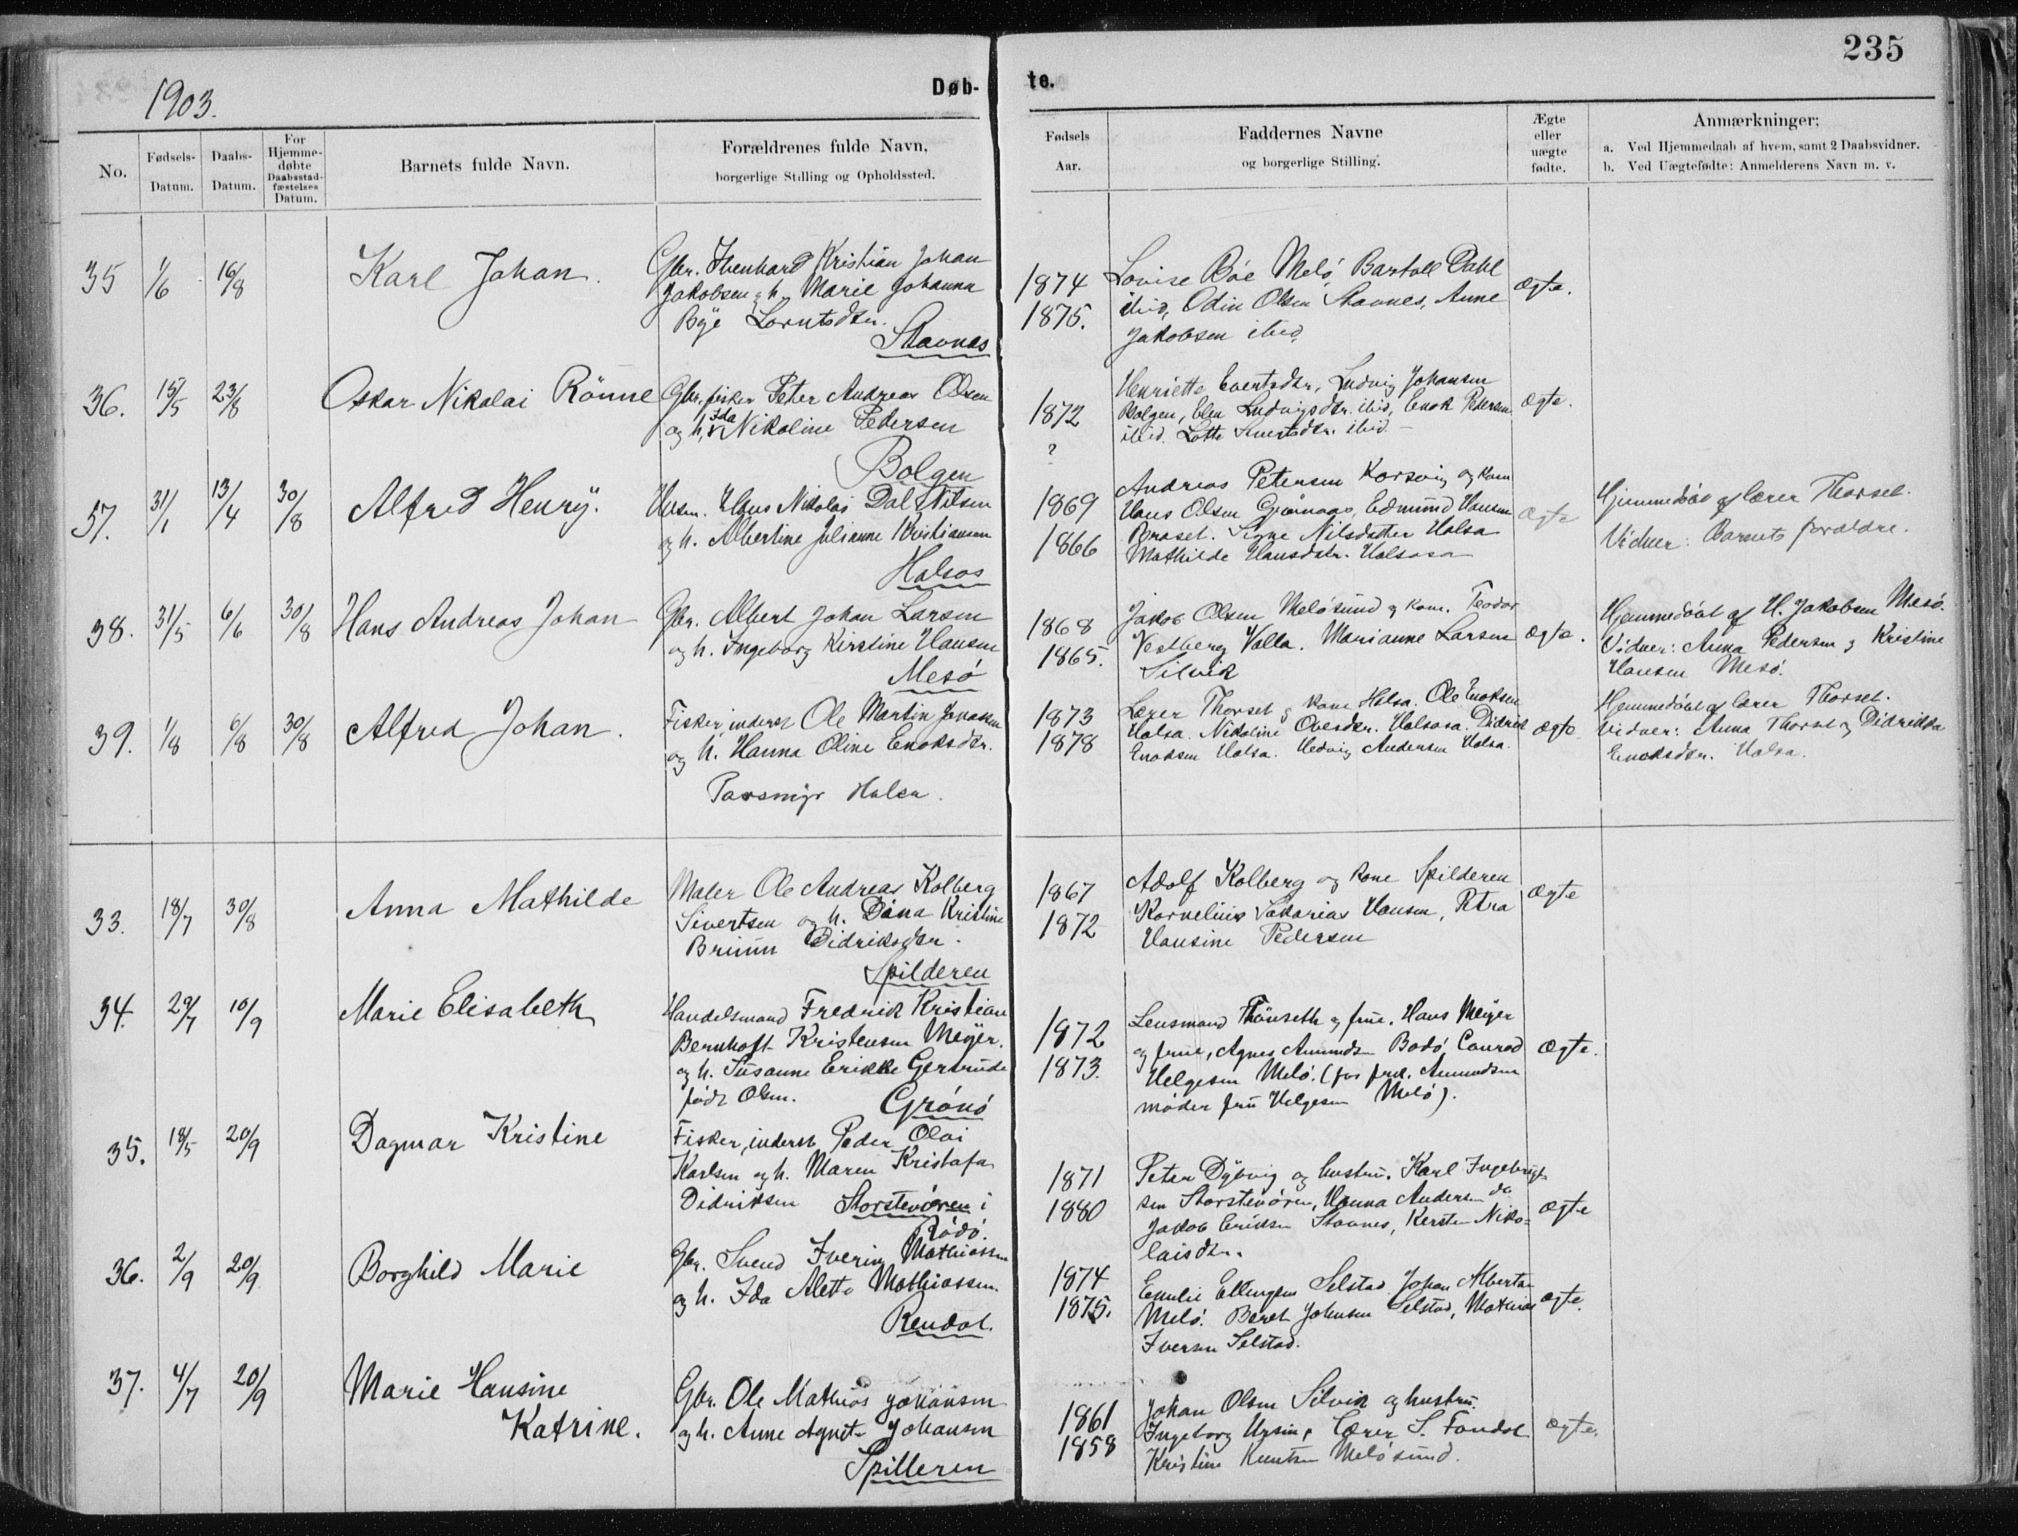 235
1903.
Døb-
te.
No.
Fødsels-
Datum.
Daabs-
Datum.
For
Hjemme-
døbte
Daabsstad-
fæstelses
Datum.
Barnets fulde Navn.
Forældrenes fulde Navn,
borgerlige Stilling og Opholdssted.
Fødsels
Aar.
Faddernes Navne
og borgerlige Stilling.
Ægte
eller
uægte
fødte.
Anmærkninger:
a. Ved Hjemmedaab af hvem, samt 2 Daabsvidner.
b. Ved Uægtefødte: Anmelderens Navn m. v.
35 1/6 16/8 Karl Johan.
Gbr. Ibenhard Kristian Johan
Jakobsen og h. Marie Johanna
Bye Lorntsdtr.
Stavnes
1874
1875.
Lovise Bøe Melö, Bartoll Dahl
ibid, Odin Olsen Stavnes, Anne
Jakobsen ibid,
Ægte.
36. 15/5 23/8 Oskar Nikolai Rönne
Gbr, fisker Peter Andreas Olsen
og h, Ida Nikoline Pedersen
Bolgen
1872
?
Henriette Evertsdtr, Ludvig Johansen
Bolgen, Elen Ludvigsdtr. ibid, Enok Pedersen
ibid. Lotte Sivertsdtr. ibid.
Ægte.
37. 31/1 13/4 30/8 Alfred Henry.
Husm. Hans Nikolai Dal Nilsen
og h. Albertine Julianne Kristiansen
Halsos
1869
1866
Andreas Petersen Korsvig og kone
Hans Olsen Grønnaas, Edmund Hansen
Braset. Signe Nilsdatter Halsa
Mathilde Hansdtr. Halsosa
Ægte
Hjemmedöbt af lærer Thorset.
Vidner: Barnets forældre.
38. 31/5 6/6 30/8 Hans Andreas Johan
Gbr. Albert Johan Larsen
og h. Ingeborg Kirstine Hansen
Mesö
1868
1865.
Jakob Olsen Melösund og kone. Teodor
Vestberg Valla. Marianne Larsen
Silvik
Ægte.
Hjemmedöbt af H. Jakobsen Mesö.
Vidner: Anna Pedersen og Kristine
Hansen Mesö.
39. 1/8 6/8 30/8 Alfred Johan.
Fisker, inderst Ole Martin Jonassen
og h. Hanna Oline Enoksdtr.
Parsmyr Halsa.
1873
1878
Lærer Thorset og kone Halsa. Ole Enoksen
Halsa. Nikoline Olsesdtr. Halsosa. Didrik
Enoksen Halsa. Hedvig Andersen Halsa.
Ægte
Hjemmedöbt af lærer Thorset.
Vidner: Anna Thorset og Didrikka
Enoksdtr. Halsa.
33. 18/7 30/8 Anna Mathilde
Maler Ole Andreas Kolberg
Sivertsen og h. Dina Kristine
Bruun Didriksdtr.
Spilderen
1867
1872
Adolf Kolberg og kone Spilderen
Kornelius Sakarias Hansen, Petra
Hansine Pedersen
Ægte
34. 29/7 10/9 Marie Elisabeth
Handelsmand Fredrik Kristian
Bernhoft Kristensen Meyer.
og h. Susanne Erikke Gertrude
född Olsen.
Grönö
1872
1873.
Lensmand Thönseth og frue. Hans Meyer
og frue, Agnes Amundsen Bodö, Conrad
Helgesen Melö. (for frøk. Amundsen
möder fru Helgesen Melö).
Ægte.
35. 18/5 20/9 Dagmar Kristine
Fisker, inderst Peder Olai
Karlsen og h. Maren Kristofa
Didriksen Storstenören i
Rödö.
1871
1880
Peter Dybvig og hustru. Karl Ingebrigt-
sen Storstenören, Hanna Andersen do
Jakob Eriksen Stavnes, Kersten Niko-
laisdtr.
Ægte
36. 2/9 20/9 Borghild Marie
Gbr. Svend Ivering Mathiassen
og h. Ida Alette Mathiassen.
Rendal.
1874
1875.
Emelie Ellingsen Selstad. Johan Albertsen
Melö. Beret Johnsen Selstad, Mathias
Iversen Selstad.
Ægte.
37. 4/7 20/9 Marie Hansine
Katrine.
Gbr. Ole Mathias Johansen
og h. Anne Agnete Johansen
Spilleren
1861
1858
Johan Olsen Silvik og hustru.
Ingeborg Ursin, Lærer S. Fondal
Kristine Knutsen Melösund.
Ægte.